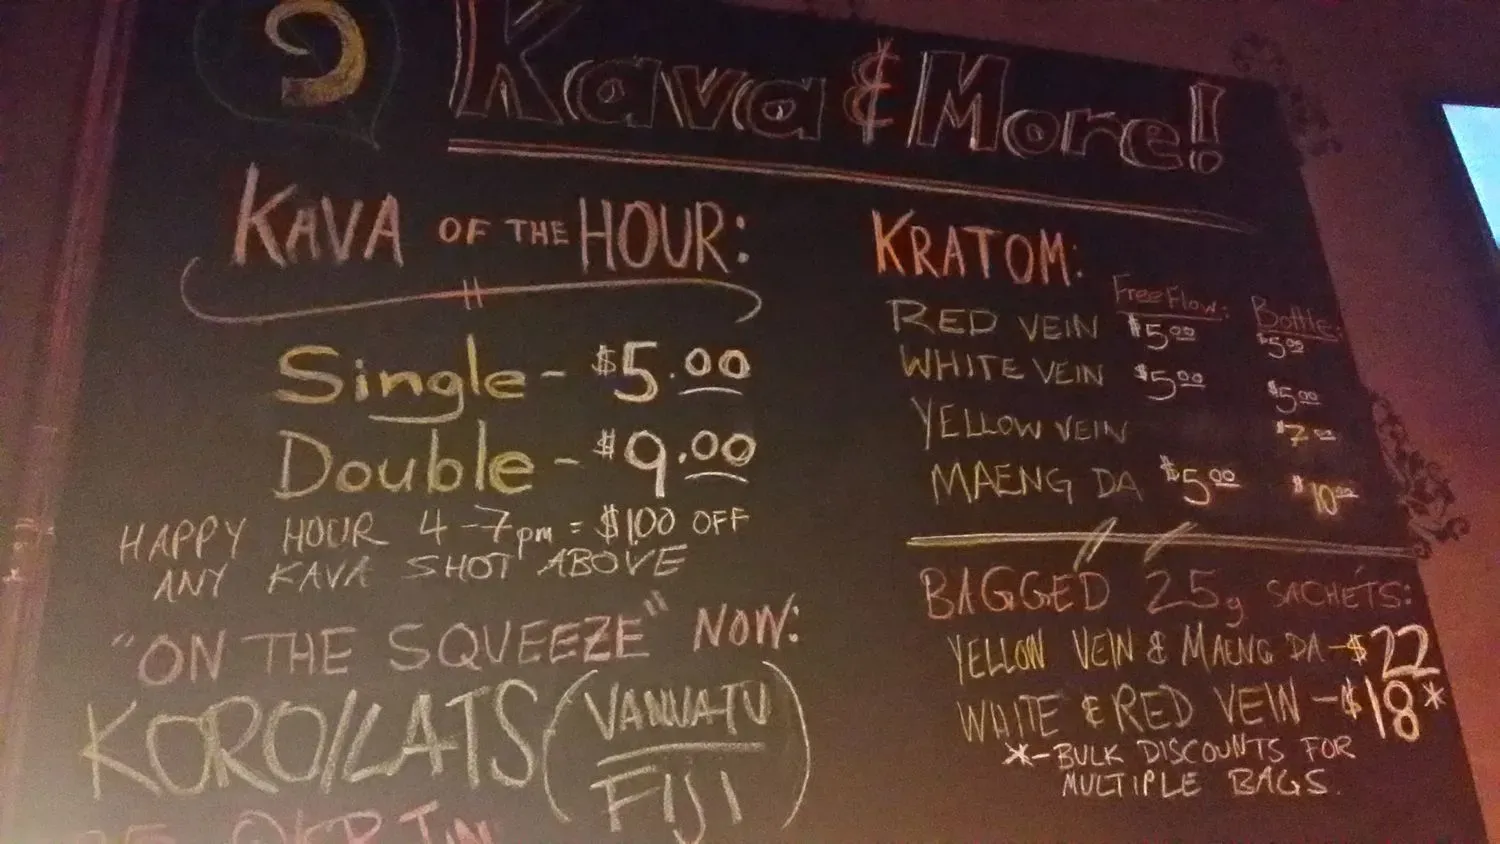 Kava & More!
KAVA OF THE HOUR:
Single - $5.00
Double - $9.00
HAPPY HOUR 4-7pm = $1.00 OFF
ANY KAVA SHOT ABOVE
"ON THE SQUEEZE" NOW:
KORO/LATS (VANUATU
FIJI)
KRATOM:
FreeFlow: Bottle:
RED VEIN $5.00 $5.00
WHITE VEIN $5.00 $5.00
YELLOW VEIN $7.00
MAENG DA $5.00 $10.00
BAGGED 25g SACHETS:
YELLOW VEIN & MAENG DA - $22
WHITE & RED VEIN - $18*
*-BULK DISCOUNTS FOR
MULTIPLE BAGS.